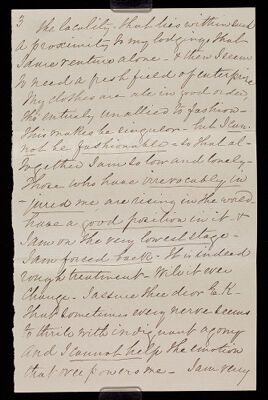 3
the locality, that lies within such
a proximity to my lodgings that
I dare venture alone - & then I seem
to need a fresh field of enterprise
My clothes are all in good order,
tho entirely unallied to fashion -
this makes me singular - but I can
not be fashionable - so that al-
together I am so low and lonely -
Those who have irrevocably in
- jured me are rising in the world -
have a good position in it - &
I am on the very lowest stage -
I am forced back - It is indeed
rough treatment - Will it ever
Change - I assure thee dear E.K -
that sometimes every nerve seems
to thrill with indignant agony
and I cannot help the emotion
that over powers me - I am very